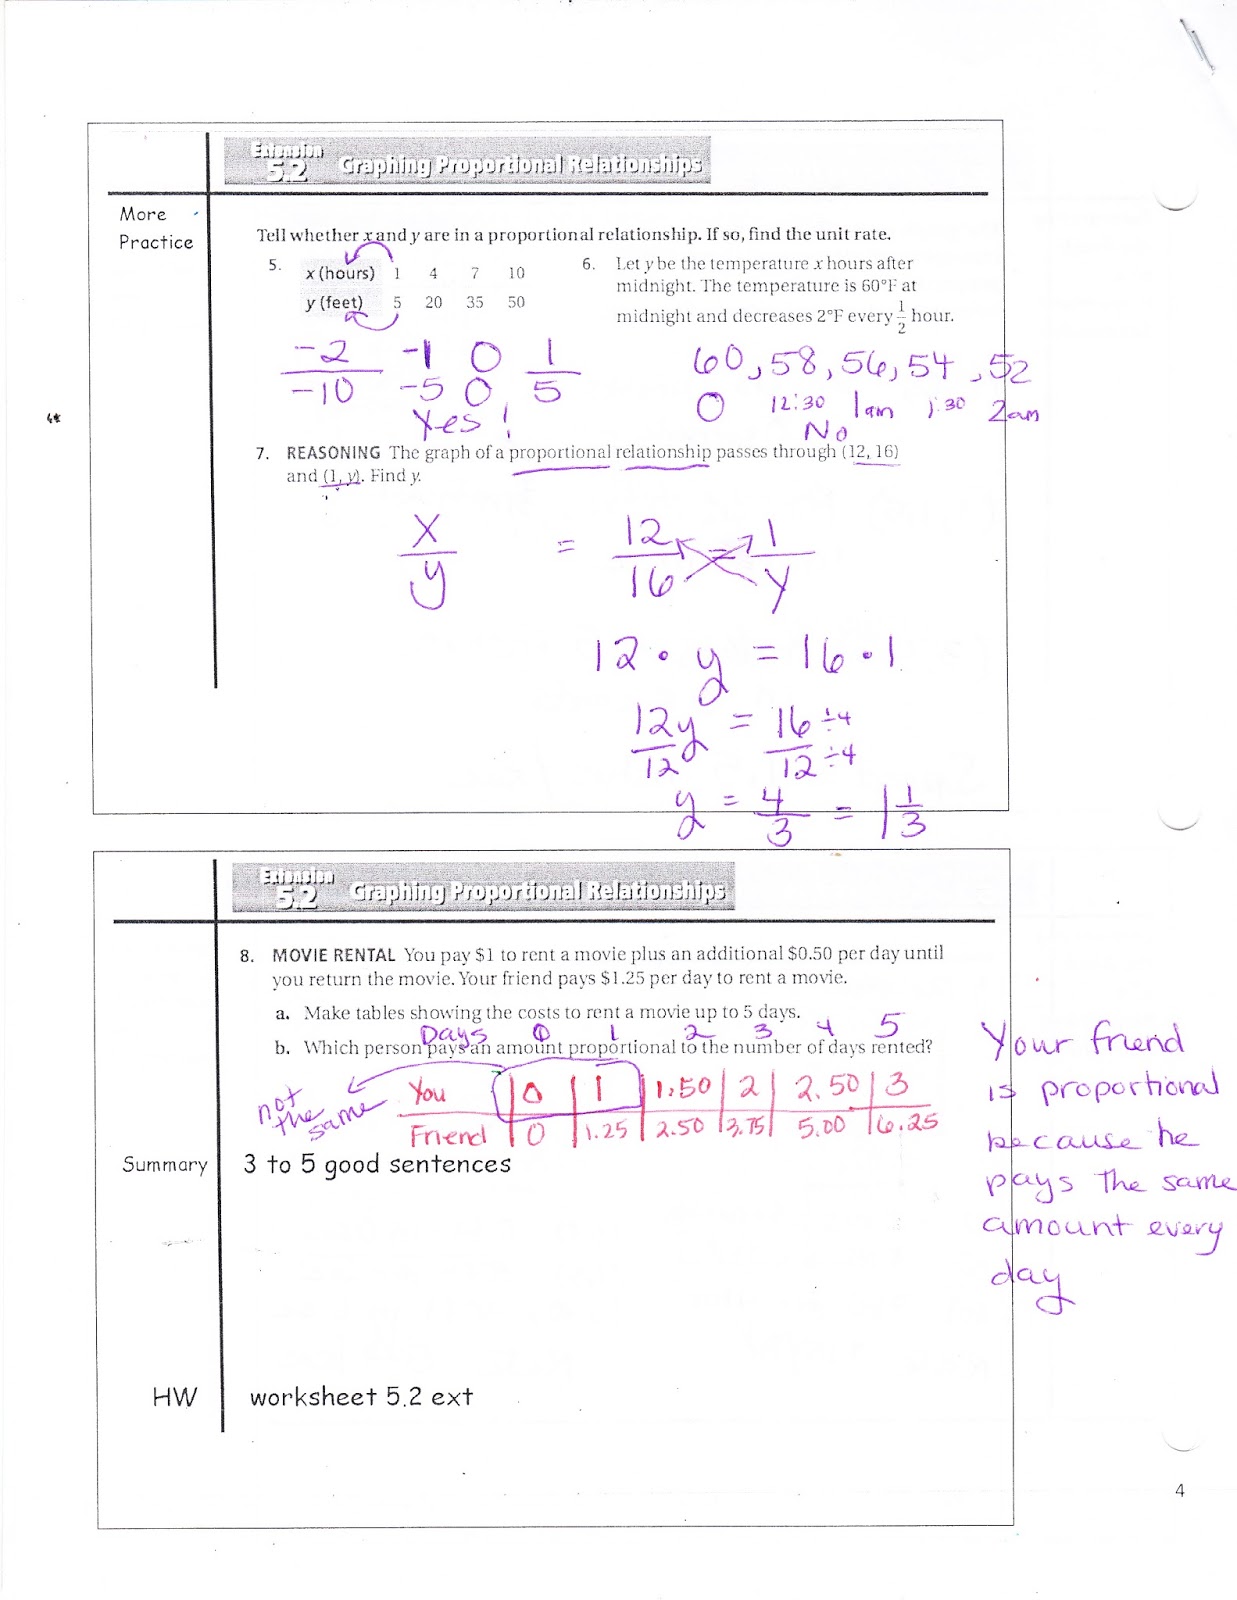 Extension
5.2 Graphing Proportional Relationships
More
Practice
Tell whether x and y are in a proportional relationship. If so, find the unit rate.
5. x (hours) 1 4 7 10
y (feet) 5 20 35 50
-2 -1 0 1
-10 -5 0 5
Yes!
6. Let y be the temperature x hours after
midnight. The temperature is 60°F at
midnight and decreases 2°F every 1/2 hour.
60, 58, 56, 54, 52
0 12:30 1am 1:30 2am
No
7. REASONING The graph of a proportional relationship passes through (12, 16)
and (1, y). Find y.
x/y = 12/16 = 1/y
12 · y = 16 · 1
12y/12 = 16÷4/12÷4
y = 4/3 = 1 1/3
Extension
5.2 Graphing Proportional Relationships
8. MOVIE RENTAL You pay $1 to rent a movie plus an additional $0.50 per day until
you return the movie. Your friend pays $1.25 per day to rent a movie.
a. Make tables showing the costs to rent a movie up to 5 days.
Days 0 1 2 3 4 5
b. Which person pays an amount proportional to the number of days rented?
not
the same
You 0 1 1.50 2 2.50 3
Friend 0 1.25 2.50 3.75 5.00 6.25
Your friend
is proportional
because he
pays the same
amount every
day
Summary 3 to 5 good sentences
HW worksheet 5.2 ext
4